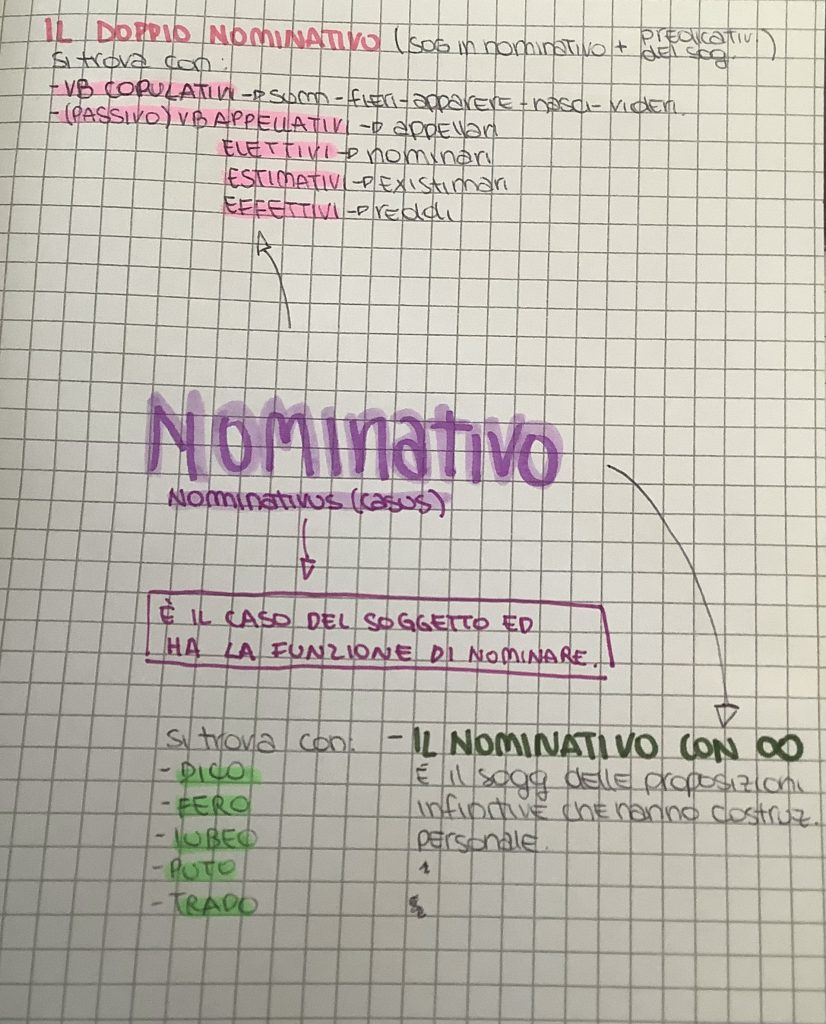 IL DOPPIO NOMINATIVO (sog in nominativo + predicativi del sog.)
si trova con:
- VB COPULATIVI → sum - fieri - apparere - nasci - videri
- (PASSIVO) VB APPELLATIVI → appellari
ELETTIVI → nominari
ESTIMATIVI → existimari
EFFETTIVI → reddi
NOMINATIVO
Nominativus (casus)
È IL CASO DEL SOGGETTO ED
HA LA FUNZIONE DI NOMINARE.
si trova con:
- DICO
- FERO
- IUBEO
- PUTO
- TRADO
- IL NOMINATIVO CON ∞
È il sogg delle proposizioni
infinitive che hanno costruz.
personale.
1